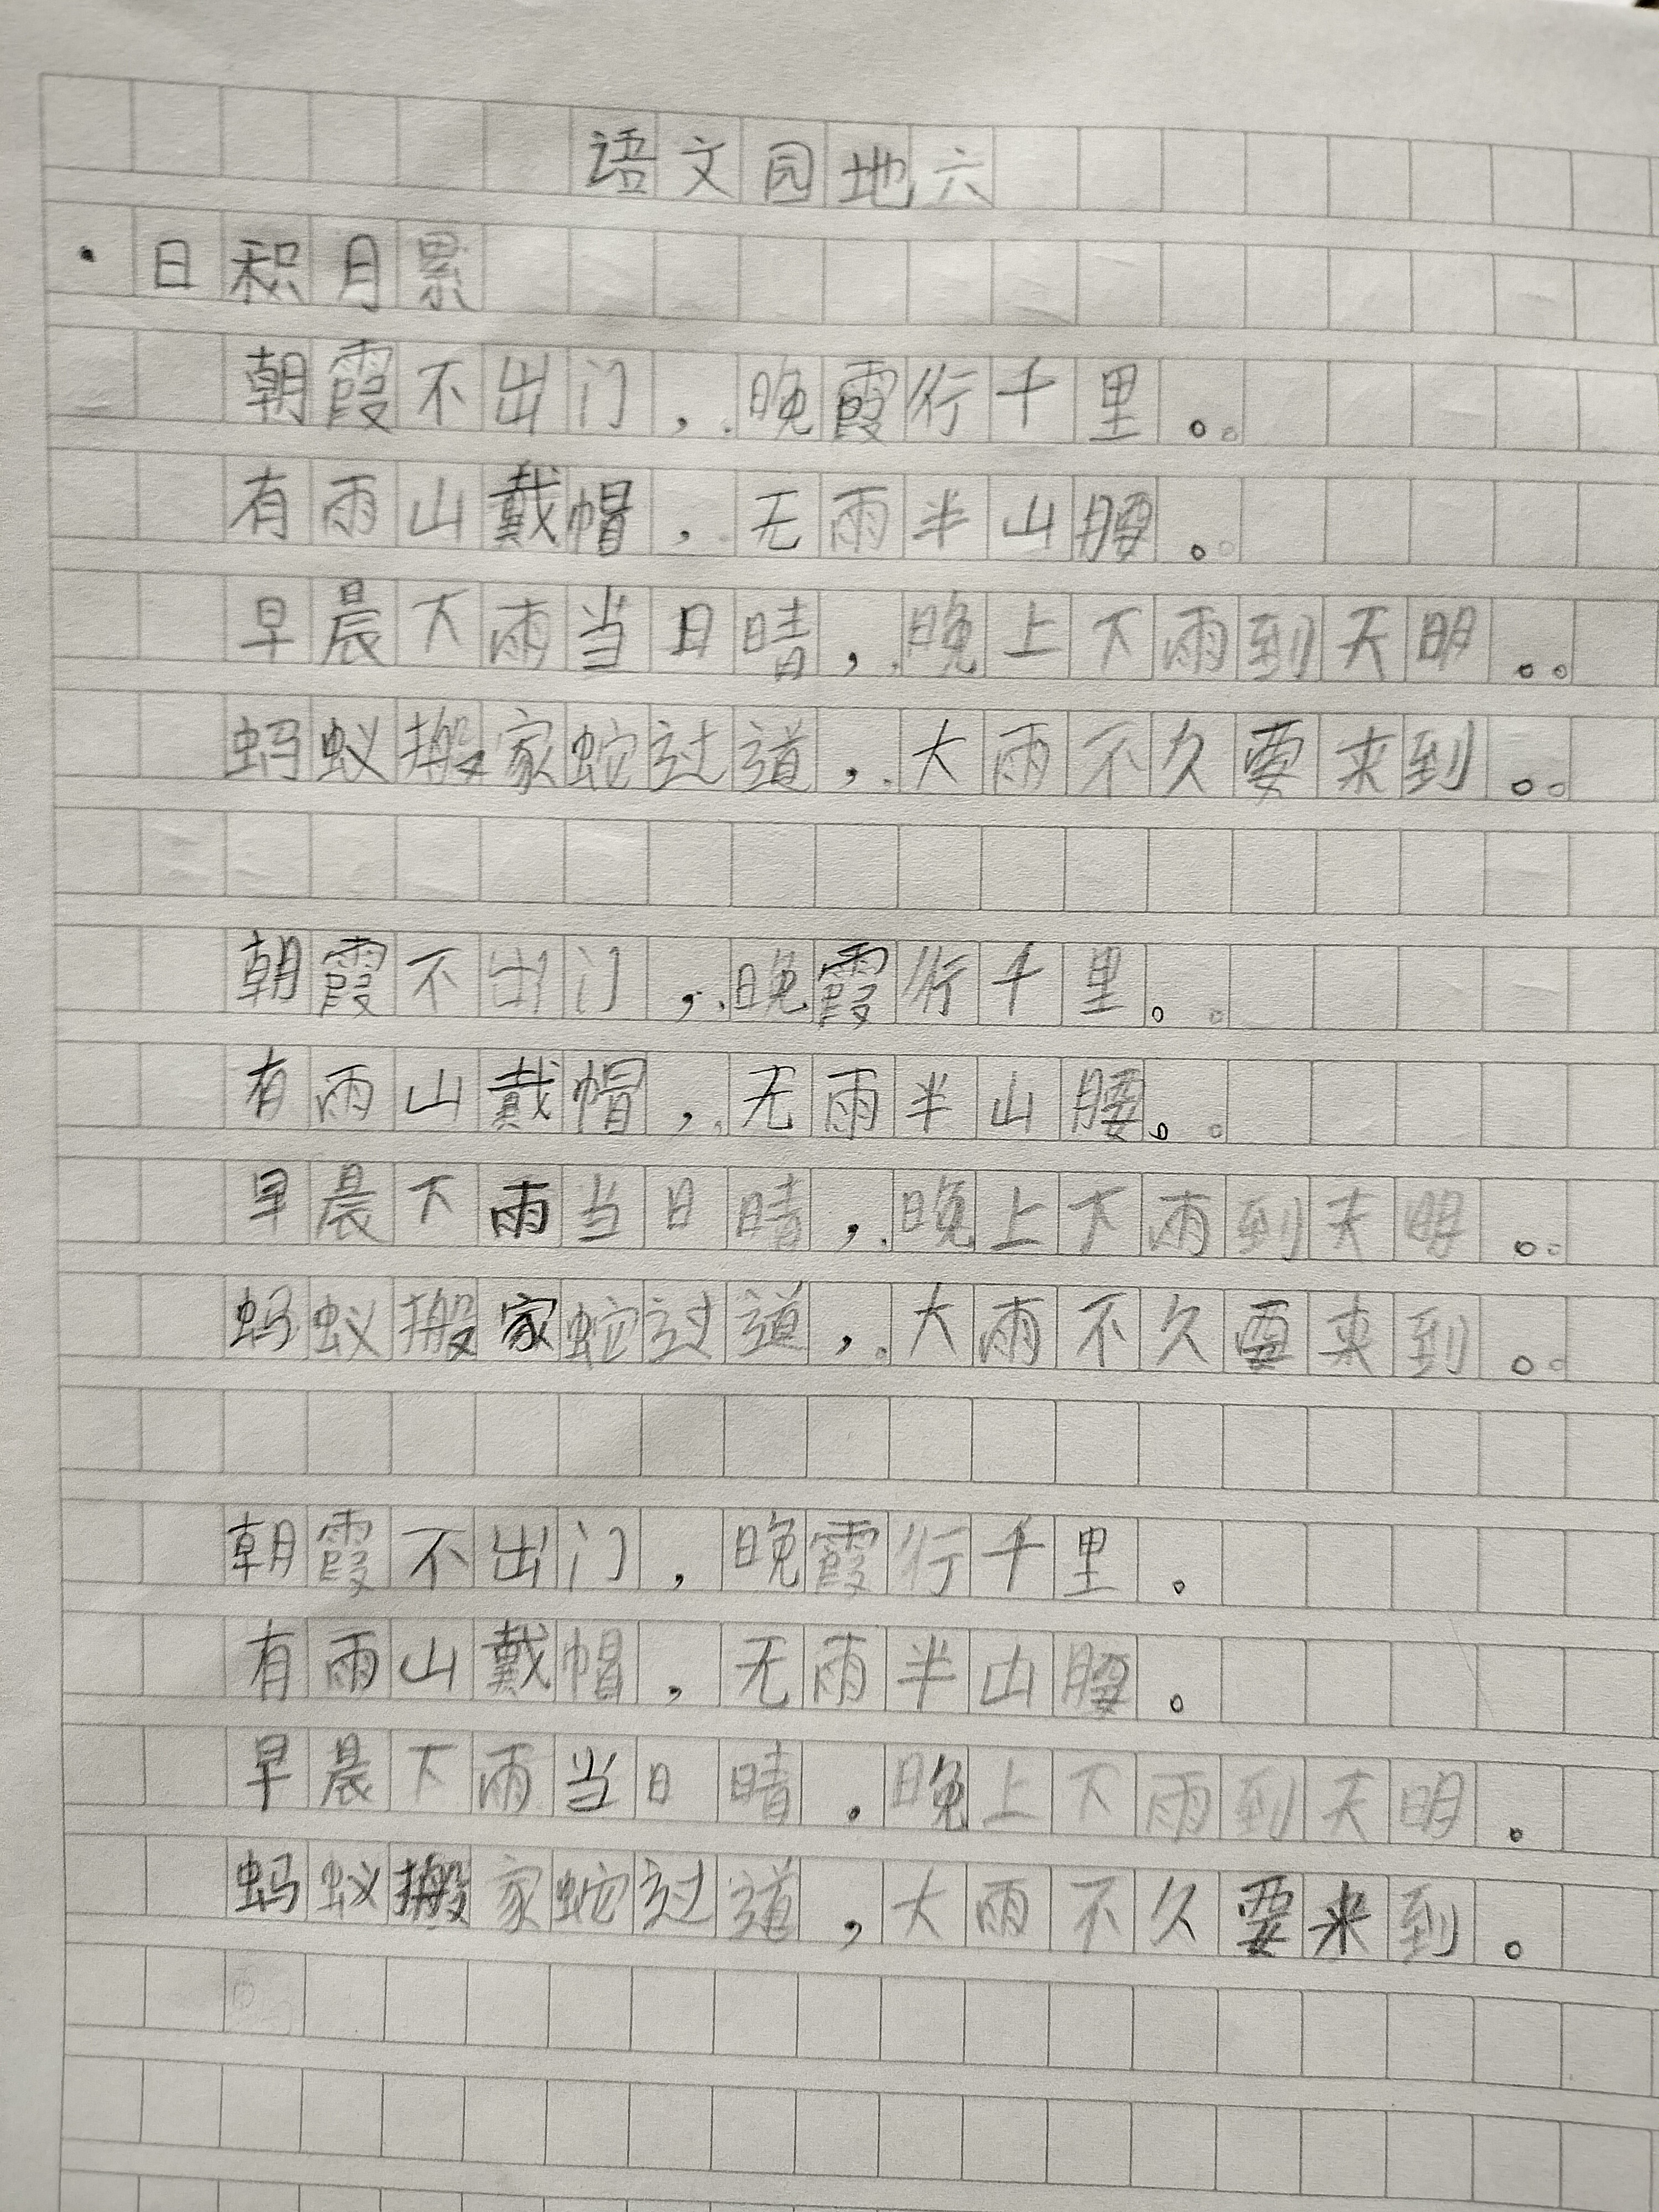 语文园地六
·日积月累
朝霞不出门，晚霞行千里。
有雨山戴帽，无雨半山腰。
早晨下雨当日晴，晚上下雨到天明。
蚂蚁搬家蛇过道，大雨不久要来到。
朝霞不出门，晚霞行千里。
有雨山戴帽，无雨半山腰。
早晨下雨当日晴，晚上下雨到天明。
蚂蚁搬家蛇过道，大雨不久要来到。
朝霞不出门，晚霞行千里。
有雨山戴帽，无雨半山腰。
早晨下雨当日晴，晚上下雨到天明。
蚂蚁搬家蛇过道，大雨不久要来到。